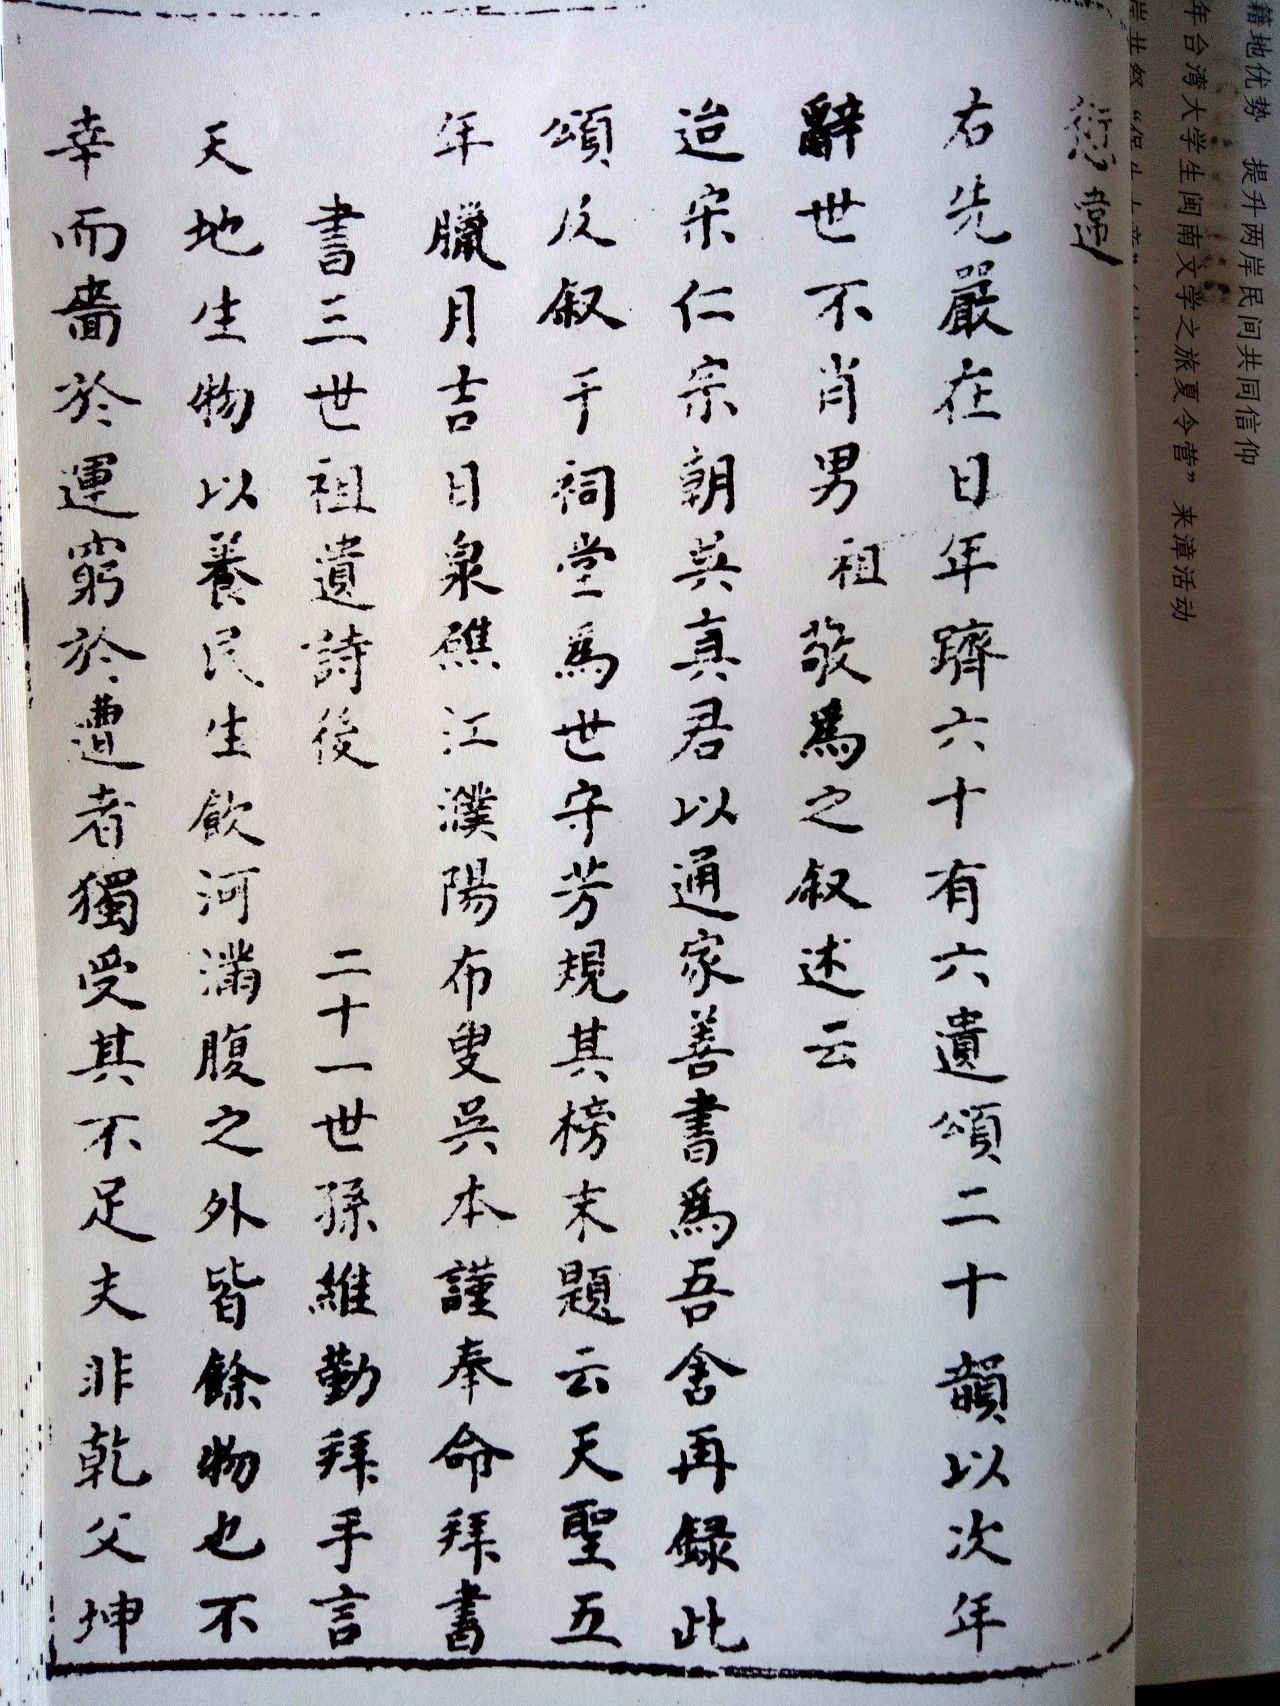 籍地优势 提升两岸民间共同信仰
年台湾大学生闽南文学之旅夏令营”来漳活动
愆違
右先嚴在日年躋六十有六遺頌二十韻以次年
辭世不肖男祖敬為之叙述云
迨宋仁宗朝吳真君以通家善書為吾舍再錄此
頌反叙于祠堂為世守芳規其榜末題云天聖五
年臘月吉日泉礁江濮陽布叟吳本謹奉命拜書
書三世祖遺詩後 二十一世孫維勤拜手言
天地生物以養民生飲河滿腹之外皆餘物也不
幸而嗇於運窮於遭者獨受其不足夫非乾父坤